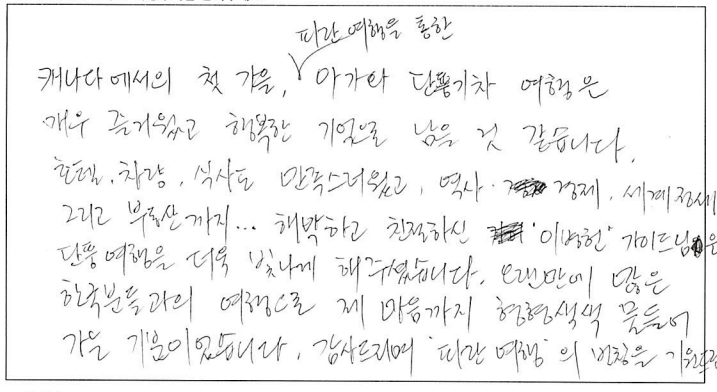 파란여행을 통한
캐나다에서의 첫 가을, 아가와 단풍기차 여행은
매우 즐거웠고 행복한 기억으로 남을 것 같습니다.
호텔, 차량, 식사도 만족스러웠고, 역사· 경제, 세계정세
그리고 부동산까지... 해박하고 친절하신 '이병헌' 가이드님은
단풍여행을 더욱 빛나게 해주셨습니다. 오랜만에 많은
한국분들과의 여행으로 제 마음까지 형형색색 물들어
가는 기분이었습니다. 감사드리며 '파란여행'의 번창을